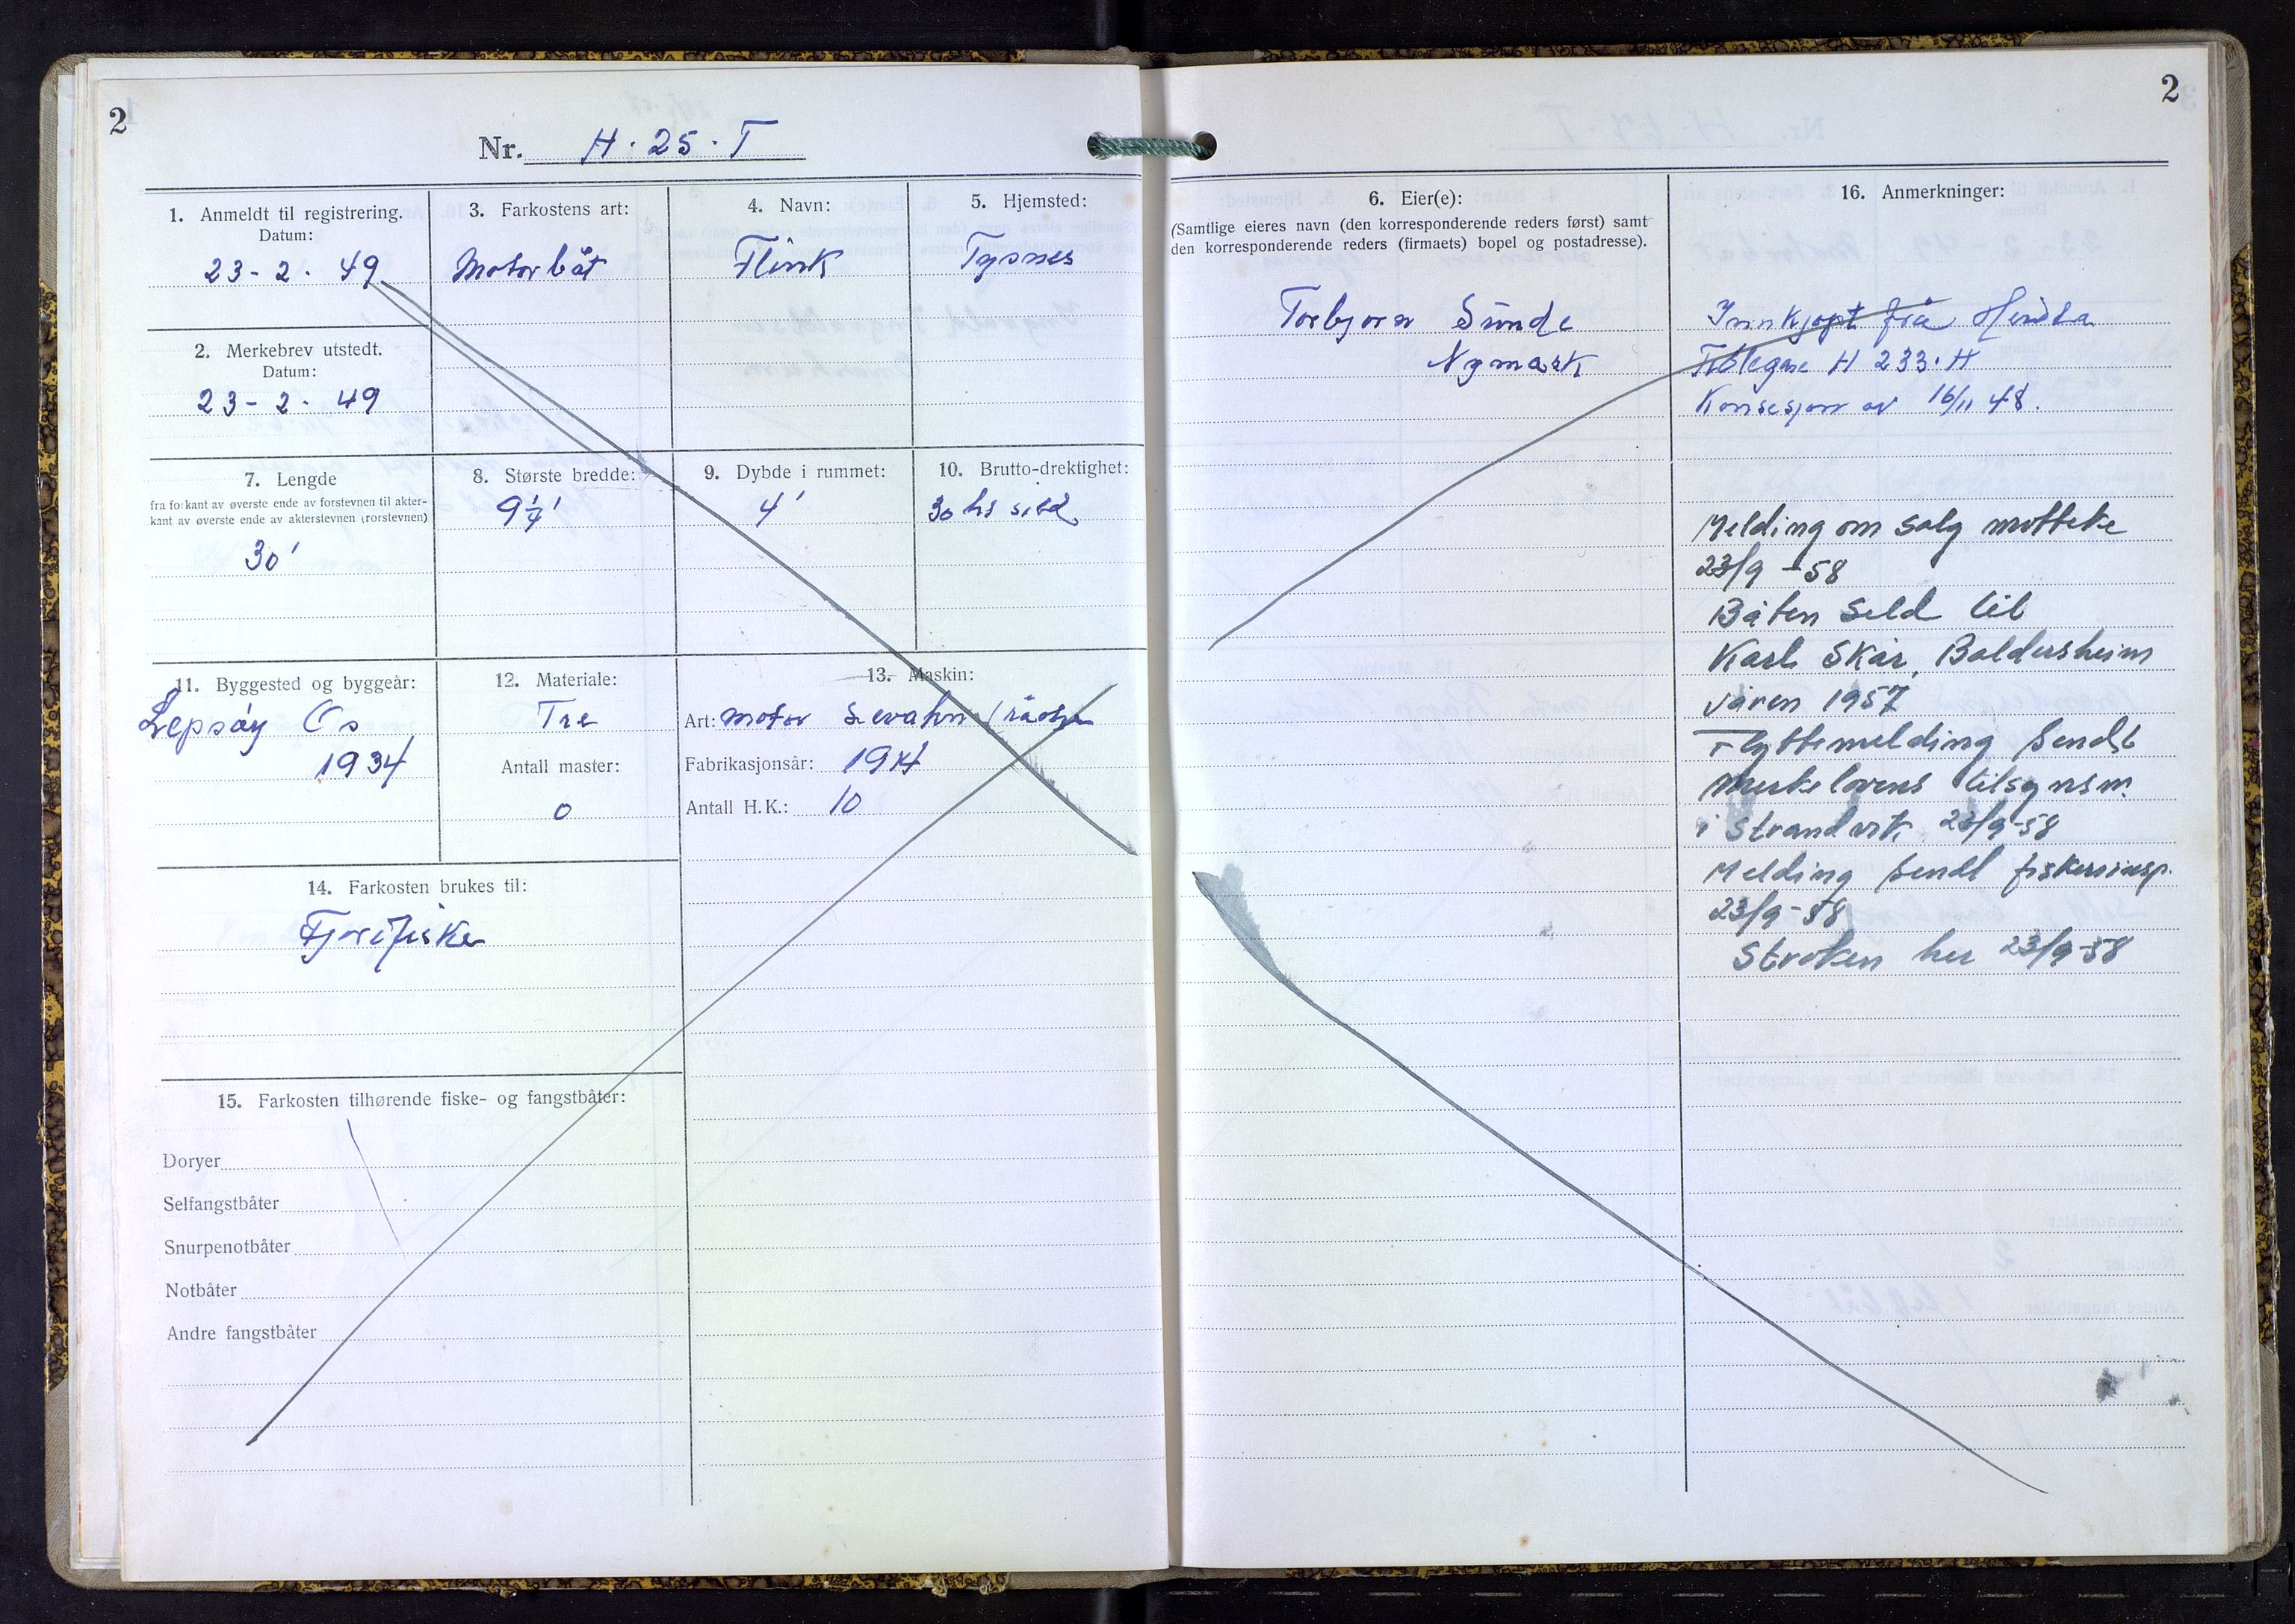 2
Nr. H. 25. T
1. Anmeldt til registrering.
Datum:
23-2. 49
2. Merkebrev utstedt.
Datum:
23-2. 49
3. Farkostens art:
Motorbåt
4. Navn:
Flink
5. Hjemsted:
Tysnes
7. Lengde
fra forkant av øverste ende av forstevnen til akter-
kant av øverste ende av akterstevnen (rorstevnen)
30'
8. Største bredde:
9 1/4'
9. Dybde i rummet:
4'
10. Brutto-drektighet:
30 hs sild
11. Byggested og byggeår:
Lepsøy Os
1934
12. Materiale:
Tre
Antall master:
0
13. Maskin:
Art: motor
Fabrikasjonsår: 1914
Antall H.K.: 10
14. Farkosten brukes til:
15. Farkosten tilhørende fiske- og fangstbåter:
Doryer
Selfangstbåter
Snurpenotbåter
Notbåter
Andre fangstbåter
2
6. Eier(e):
(Samtlige eieres navn (den korresponderende reders først) samt
den korresponderende reders (firmaets) bopel og postadresse).
Torbjørn Sunde
Nymark
16. Anmerkninger:
Innkjøpt frå
H 233. H
Konsesjon av 16/11 48.
Melding om salg motteke
23/9-58
Båten seld til
Karl Skår, Baldersheim
våren 1957
Flyttemelding sendt
merkelovens tilsynsm.
i Strandvik 23/9-58
Melding sendt fiskeriinsp.
23/9-58
Stroken her 23/9-58